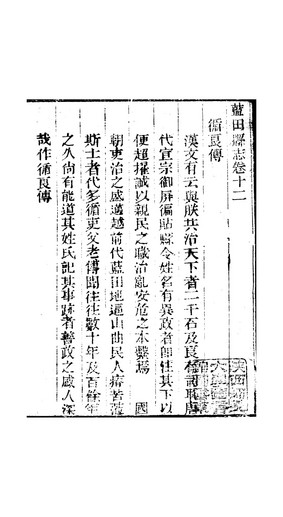 藍田縣志卷十二
循良傳
漢文有云與朕共治天下者二千石及良
代宣宗御屏徧貼縣令姓名有異政者即其下以
便超擢誠以親民之職治亂安危之本繫焉 國
朝吏治之盛邁越前代藍田地逼山曲民人瘠苦蒞
斯土者代多循吏父老傳聞往往數十年及百餘年
之久尚有能道其姓氏記其事跡者善政之感人深
哉作循良傳